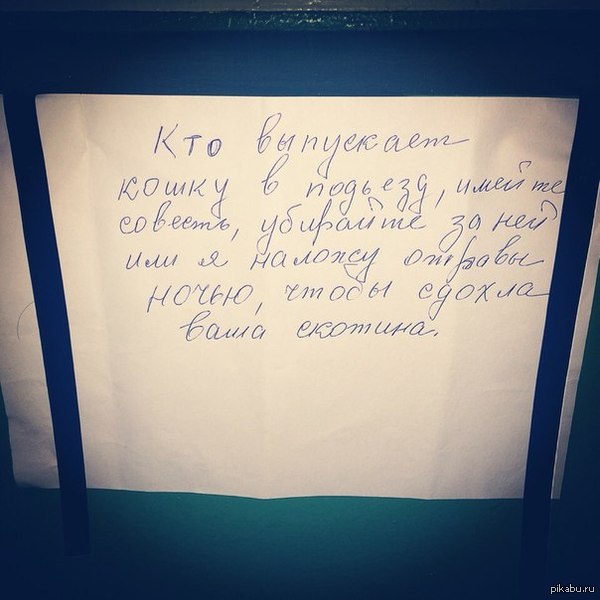 Кто выпускает
кошку в подьезд, имейте
совесть, убирайте за ней
или я наложу отравы
ночью, чтобы сдохла
ваша скотина.
pikabu.ru